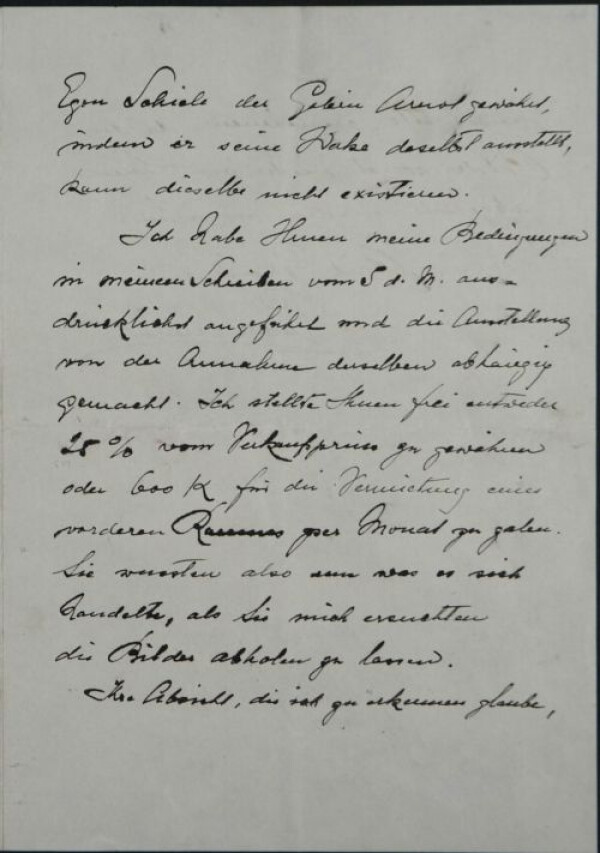 Egon Schiele der Galerie Arnot gewährt,
indem er seine Werke daselbst ausstellt,
kann dieselbe nicht existieren.
Ich habe Ihnen meine Bedingungen
in meinem Schreiben vom 5 d. M. aus-
drücklichst angeführt und die Ausstellung
von der Annahme derselben abhängig
gemacht. Ich stellte Ihnen frei entweder
25 % vom Verkaufspreise zu gewähren
oder 600 K für die Vermietung eines
vorderen Raumes per Monat zu zahlen.
Sie wussten also um was es sich
handelte, als Sie mich ersuchten
die Bilder abholen zu lassen.
Ihre Absicht, die ich zu erkennen glaube,